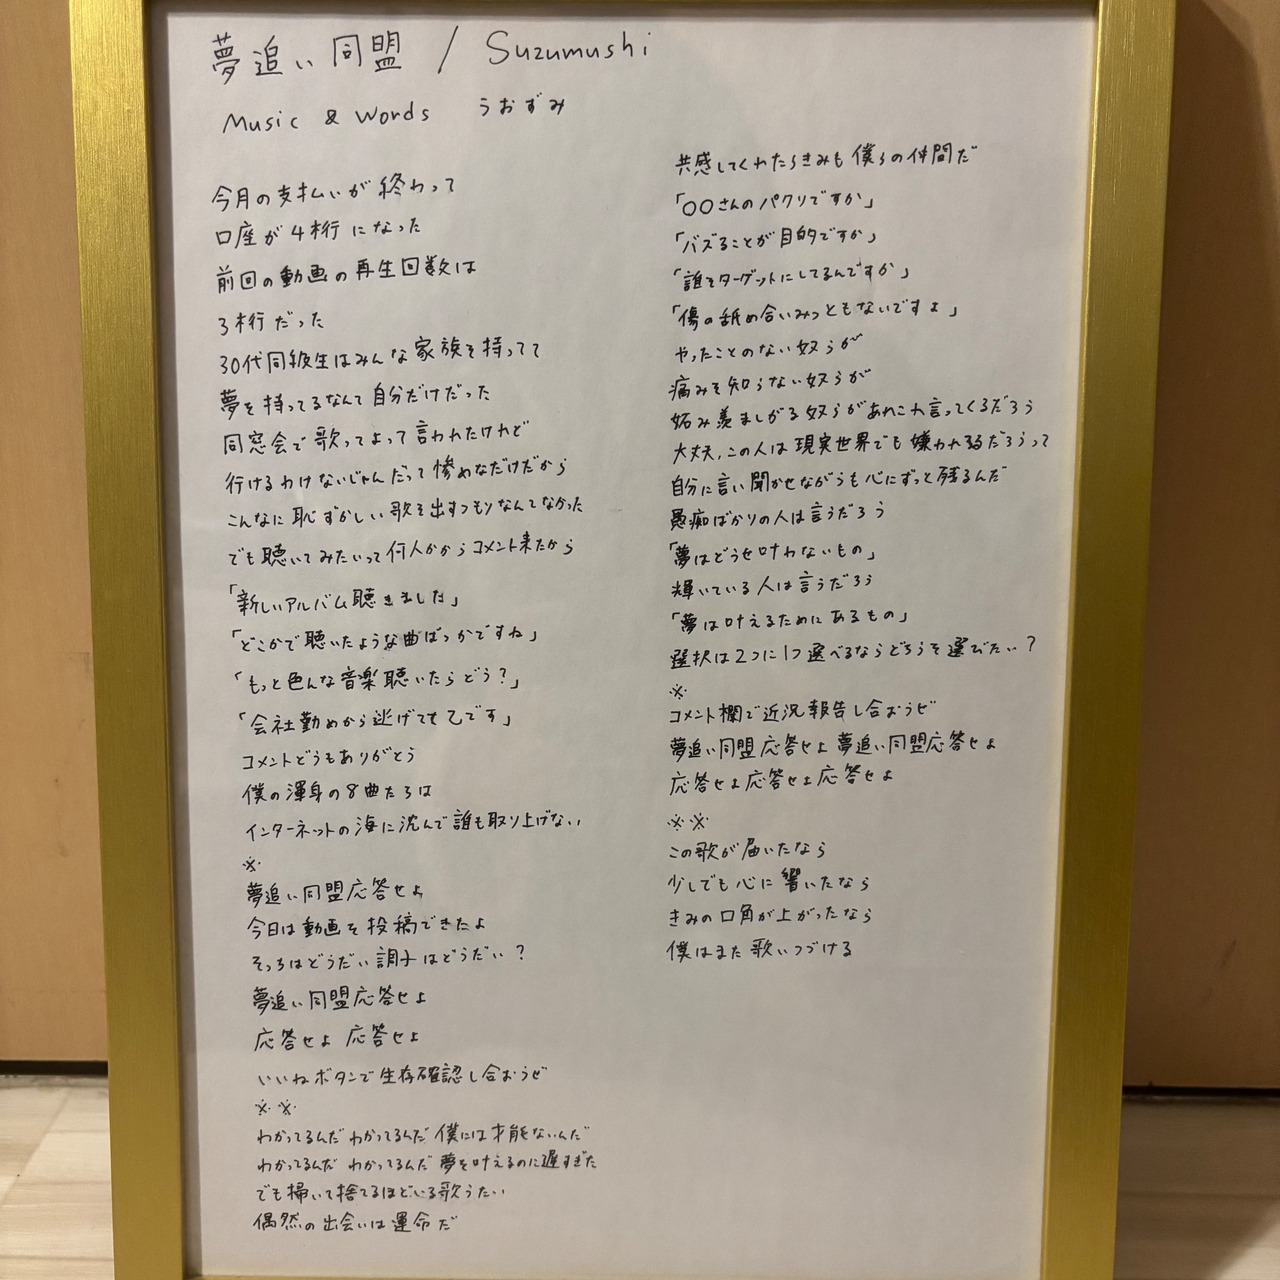 夢追い同盟 / Suzumushi
Music & Words うおずみ
今月の支払いが終わって
口座が4桁になった
前回の動画の再生回数は
3桁だった
30代同級生はみんな家族を持ってて
夢を持ってるなんて自分だけだった
同窓会で歌ってよって言われたけれど
行けるわけないじゃんだって惨めなだけだから
こんなに恥ずかしい歌を出すつもりなんてなかった
でも聴いてみたいって何人かからコメント来たから
「新しいアルバム聴きました」
「どこかで聴いたような曲ばっかですね」
「もっと色んな音楽聴いたらどう?」
「会社勤めから逃げてて乙です」
コメントどうもありがとう
僕の渾身の8曲たちは
インターネットの海に沈んで誰も取り上げない
※
夢追い同盟応答せよ
今日は動画を投稿できたよ
そっちはどうだい調子はどうだい?
夢追い同盟応答せよ
応答せよ 応答せよ
いいねボタンで生存確認し合おうぜ
※※
わかってるんだわかってるんだ僕には才能ないんだ
わかってるんだ わかってるんだ夢を叶えるのに遅すぎた
でも掃いて捨てるほどいる歌うたい
偶然の出会いは運命だ
共感してくれたらきみも僕らの仲間だ
「○○さんのパクリですか」
「バズることが目的ですか」
「誰をターゲットにしてるんですか」
「傷の舐め合いみっともないですよ」
やったことのない奴らが
痛みを知らない奴らが
妬み羨ましがる奴らがあれこれ言ってくるだろう
大丈夫、この人は現実世界でも嫌われるだろうって
自分に言い聞かせながらも心にずっと残るんだ
愚痴ばかりの人は言うだろう
「夢はどうせ叶わないもの」
輝いている人は言うだろう
「夢は叶えるためにあるもの」
選択は2つに1つ選べるならどちらを選びたい?
※
コメント欄で近況報告し合おうぜ
夢追い同盟応答せよ夢追い同盟応答せよ
応答せよ応答せよ応答せよ
※※
この歌が届いたなら
少しでも心に響いたなら
きみの口角が上がったなら
僕はまた歌いつづける